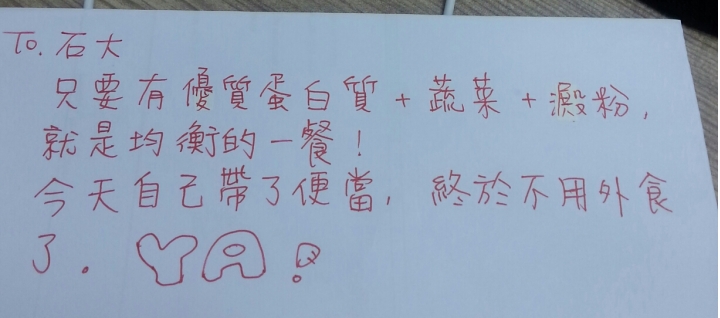 To. 石大
只要有優質蛋白質+蔬菜+澱粉,
就是均衡的一餐!
今天自己帶了便當, 終於不用外食
了。YA!